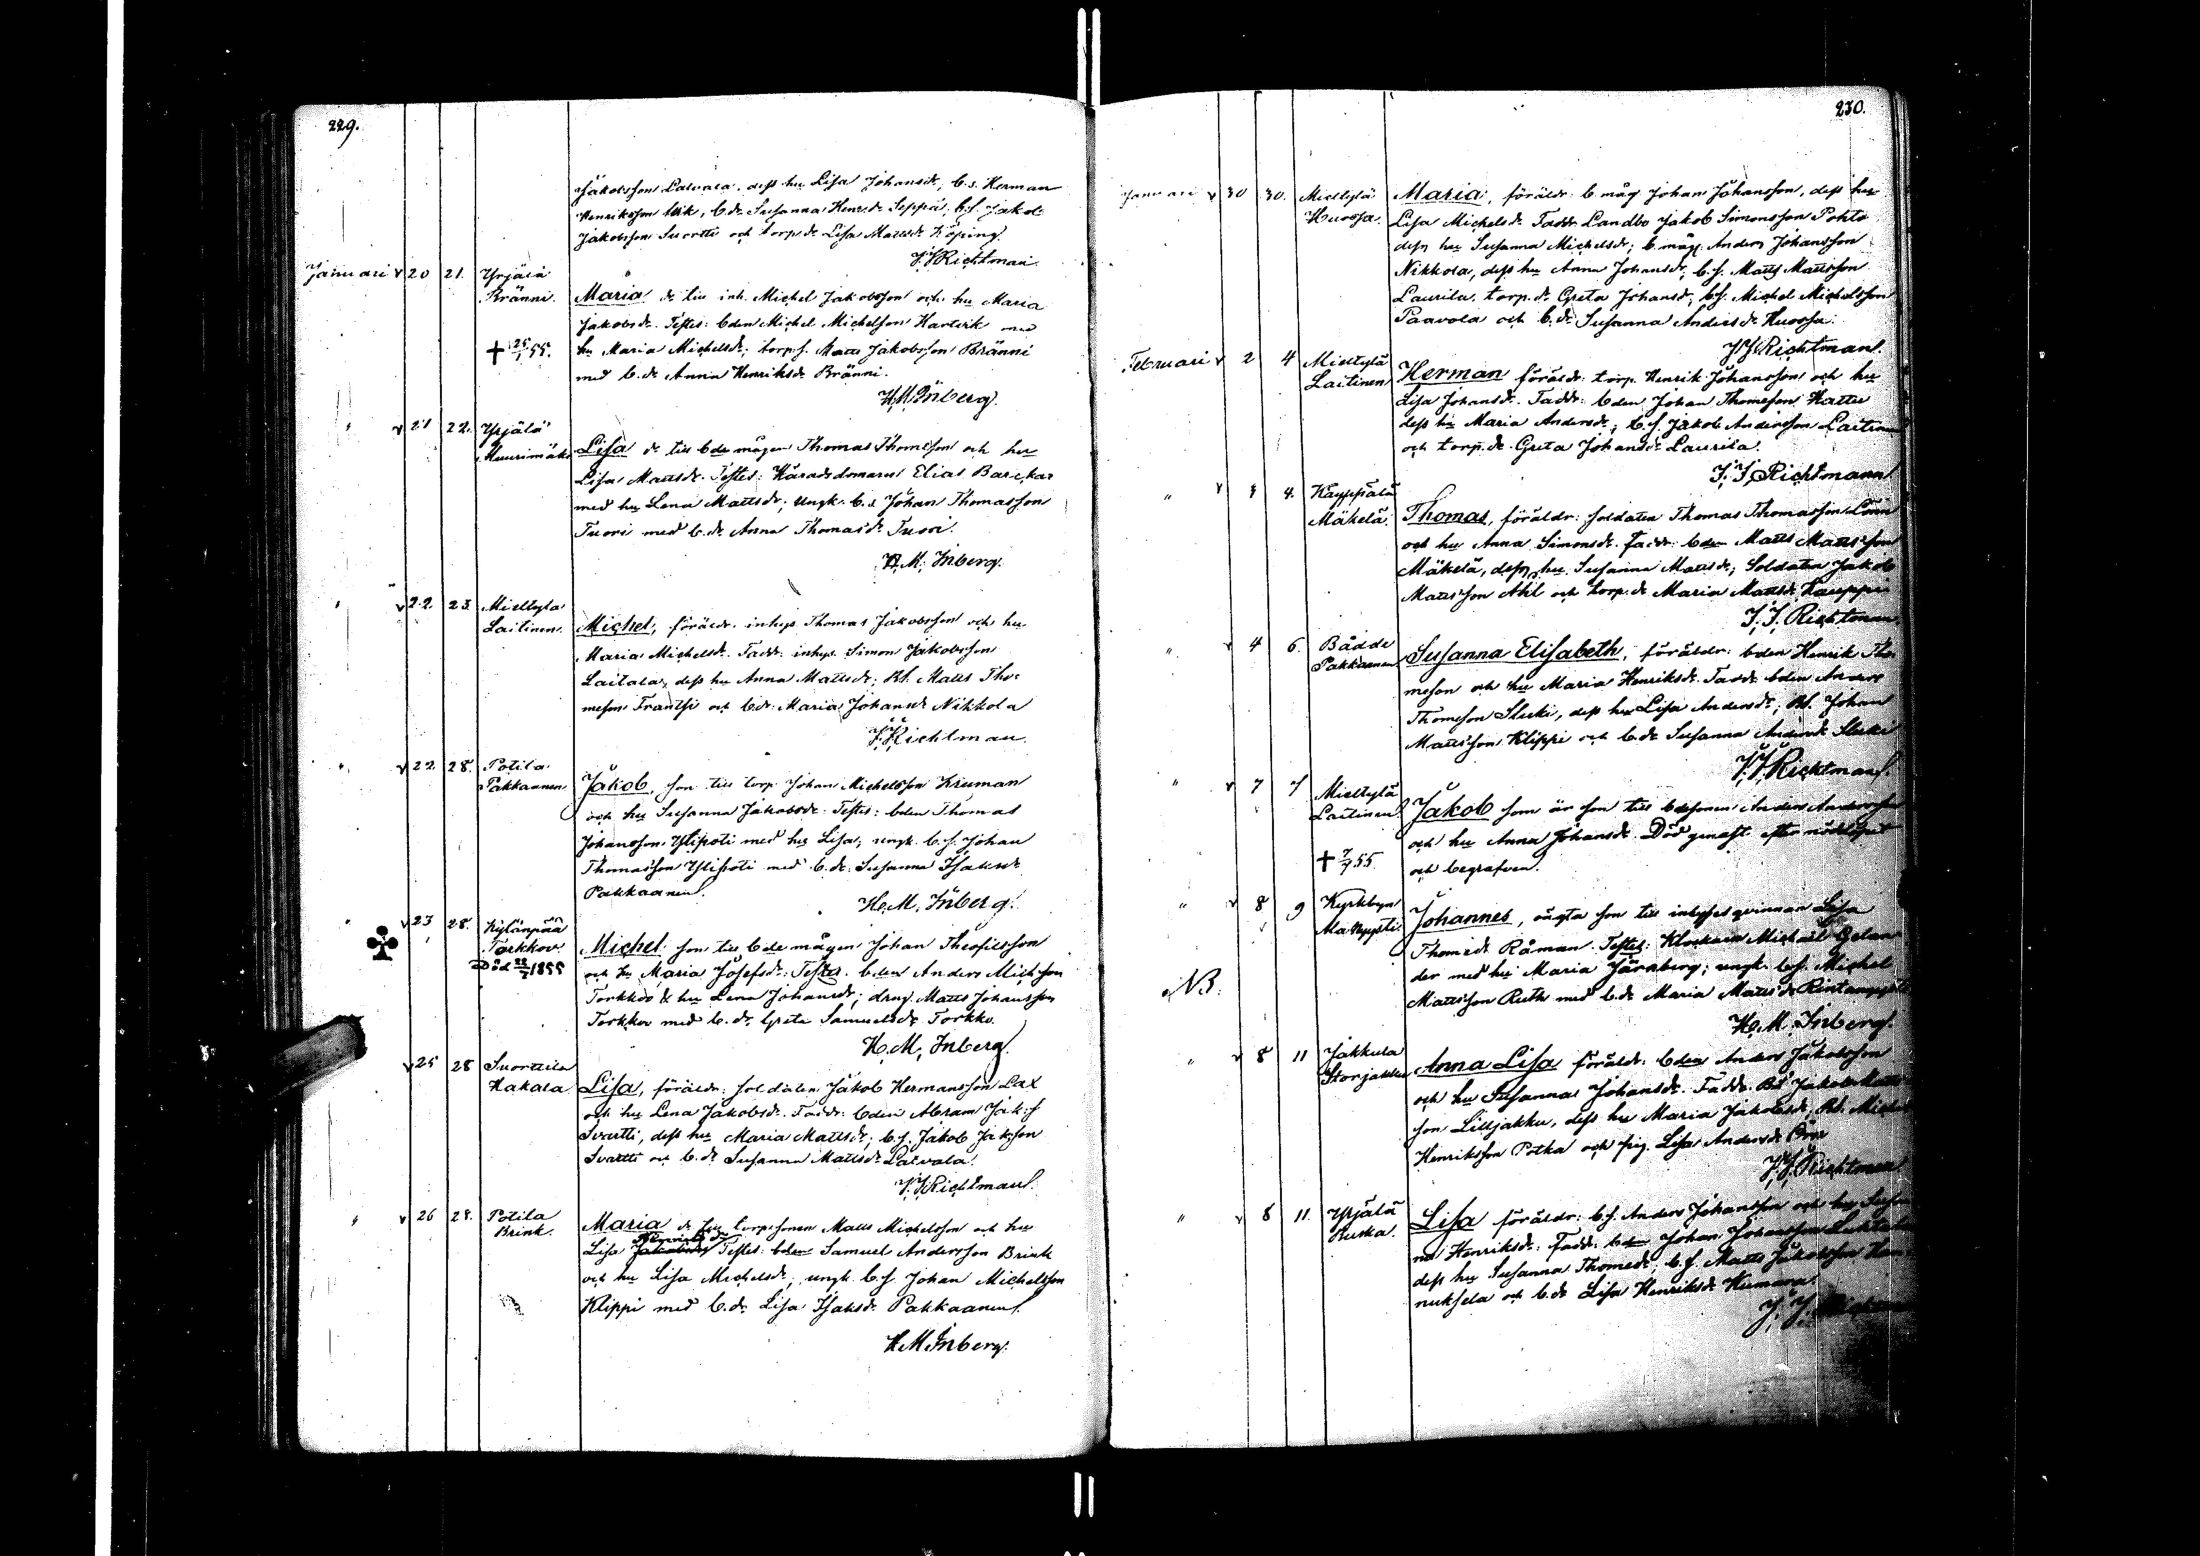 229.
Jakobsson Latvala, dess hu Lisa Johansdr, b.s. Herman
Henriksson Wik, b.dr Susanna Henr.dr Seppä; b.s. Jakob
Jakobsson Suortti och torp.dr Lisa Mattsdr Köping.
J. J. Richtman.
Januari v 20 21. Yrjälä
Bränni. Maria dr till inh. Michel Jakobsson och hu Maria
Jakobsdr. Testes: bden Michel Michelsson Karterk med
+ 25/1 55. hu Maria Michelsdr; torp.s. Matts Jakobsson Bränni
med b.dr Anna Henriksdr Bränni.
H.M. Inberg.
" v 21 22. Yrjälä
Huurimäki Lisa dr till bde mågen Thomas Thomesson och hu
Lisa Mattsdr. Testes: Häradsdomaren Elias Barckar
med hu Lena Mattsdr; Ungk. b.s Johan Thomasson
Tuori med b.dr Anna Thomasdr Tuori.
H.M. Inberg.
" v 22 23. Mieltylä
Laitinen. Michel, föräldr. inhys Thomas Jakobsson och hu
Maria Michelsdr. Faddr: inhys. Simon Jakobsson
Laitala, dess hu Anna Mattsdr; Bs. Matts Tho-
messon Frantsi och b.dr: Maria Johansdr Nikkola
J. J. Richtman.
" v 22 28. Potila
Pakkaanen Jakob, son till torp. Johan Michelsson Kruman
och hu Susanna Jakobsdr. Testes: bden Thomas
Johansson Ylipoti med hu Lisa; ungk. b.s. Johan
Thomasson Ylipoti med b.dr: Susanna Isaksdr
Pakkaanen.
H.M. Inberg.
" v 23 28. Kylänpää
Torkkov.
Död 22/7 1855 Michel son till bde mågen Johan Theofilsson
och hu Maria Josefsdr: Testes. bden Anders Michsson
Torkkov & hu Lena Johansdr; dräng. Matts Johansson
Torkkov med b.dr. Greta Samuelsdr Torkko.
H.M. Inberg.
v 25 28 Suorttila
Hakala Lisa, föräldr: soldaten Jakob Hermansson Lax
och hu Lena Jakobsdr. Faddr: bden Abram Jak:s
Svartti, dess hu Maria Mattsdr; b.s. Jakob Jaksson
Svartti och b.dr Susanna Mattsdr Latvala.
J. J. Richtman.
" v 26 28. Potila
Brink. Maria dr till torpssonen Matts Michelsson och hu
Lisa Jakobsdr Testes: bden Samuel Andersson Brink
och hu Lisa Michelsdr; ungk. b.s Johan Michelsson
Klippi med b.dr Lisa Isaksdr Pakkaanen.
H.M. Inberg.
230.
Januari v 30 30. Mieltylä
Huossa. Maria, föräldr: b.måg Johan Johansson, dess hu
Lisa Michelsdr. Faddr. Landbo Jakob Simonsson Pohto
dess hu Susanna Michelsdr; b.måg. Anders Johansson
Nikkola, dess hu Anna Johansdr; b.s. Matts Mattsson
Laurila, torp.dr Greta Johansdr; b.s. Michel Michelsson
Paavola och b.dr Susanna Andersdr Huossa.
J. J. Richtman.
Februari v 2 4 Mieltylä
Laitinen Herman föräldr: torp. Henrik Johansson och hu
Lisa Johansdr. Faddr: bden Johan Thomesson Kattu
dess hu Maria Andersdr; b.s. Jakob Andersson Laitinen
och torp.dr. Greta Johansdr Laurila.
J. J. Richtmann.
" v 4. Kauppala
Mäkelä. Thomas, föräldr: soldaten Thomas Thomasson Lönn
och hu Anna Simonsdr. Faddr: bden Matts Mattsson
Mäkelä, dess hu Susanna Mattsdr; Soldaten Jakob
Mattsson Ahl och torp.dr Maria Mattsdr Kauppi
J. J. Richtman
" v 4 6. Bådde
Pakkaanen Susanna Elisabeth, föräldr: bden Henrik Tho-
messon och hu Maria Henriksdr. Faddr bden Anders
Thomesson Sluki, dess hu Lisa Andersdr; Bs. Johan
Mattsson Klippi och b.dr Susanna Andersdr Sluki
J. J. Richtman.
" v 7 7 Mieltylä
Laitinen Jakob som är son till bdesonen Anders Andersson
och hu Anna Johansdr. Död genast efter nöddopet
+ 7/2 55. och begrafven.
" v 8 9 Kyrkbyn
Johannes, oägta son till inhyses qvinnan Lisa
Thomedr Råman. Testes: Klockaren Michael Gelan-
der med hu Maria Järnberg; ungk. b.s. Michel
NB. Mattsson Ruth med b.dr Maria Mattsdr
H.M. Inberg.
" v 8 11 Jakkula
Storjakku Anna Lisa föräldr: bden Anders Jakobsson
och hu Susanna Johansdr. Faddr. Bd Jakob Matts-
son Lilljakku, dess hu Maria Jakobsdr, Bd. Michel
Henriksson Potka och pig. Lisa Andersdr
J. J. Richtman
" v 8 11. Yrjälä
Ruska. Lisa föräldr: b.s. Anders Johansson och hu Susan-
na Henriksdr: Faddr: bden Johan Johansson
dess hu Susanna Thomedr; b.s. Matts Jakobsson
nuksela och b.dr Lisa Henriksdr Humana.
J. J. Richtman